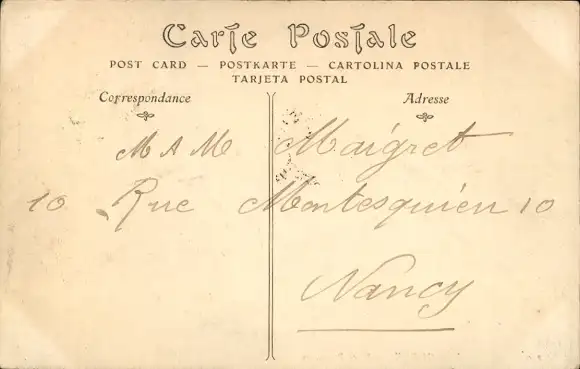 Carte Postale
POST CARD — POSTKARTE — CARTOLINA POSTALE
TARJETA POSTAL
Correspondance Adresse
M A M Maigret
10 Rue Montesquieu 10
Nancy